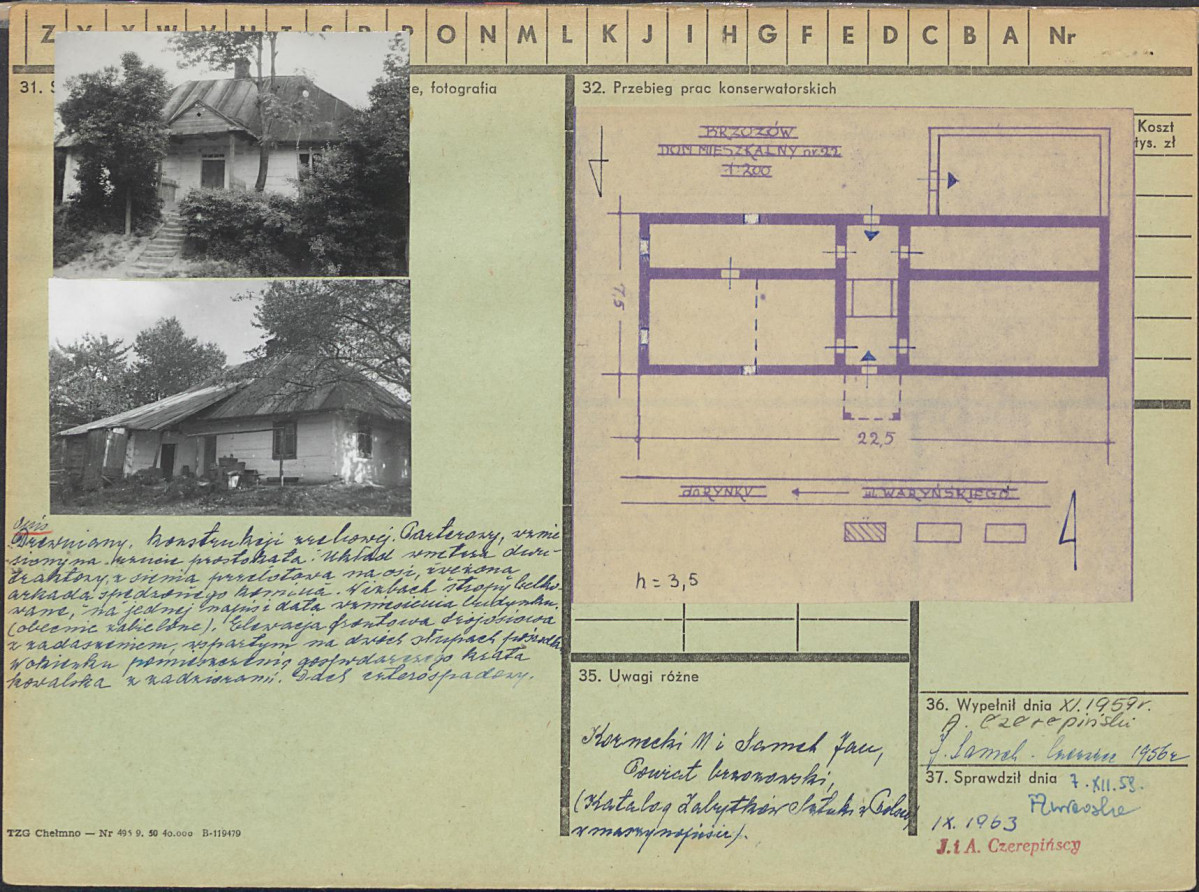 Z Y X W V U T S R P O N M L K J I H G F E D C B A Nr
31. S
e, fotografia
32. Przebieg prac konserwatorskich
Koszt
tys. zł
BRZOZÓW
DOM MIESZKALNY nr 22
1:200
7,5
22,5
do RYNKU
ul. WARYŃSKIEGO
h = 3,5
Opis
Drewniany, konstrukcji zrębowej. Parterowy, wznie-
siony na rzucie prostokąta. Układ wnętrza dwu-
traktowy, z sienią przelotową na osi, zwężoną
arkadą spodzonego komina. W izbach stropy belko-
wane, na jednej napis i data wzniesienia budynku.
(obecnie zabielone). Elewacja frontowa trójosiowa
z zadaszeniem, wspartym na dwóch słupach pośrodku
W okienku pomieszczenia gospodarczego krata
kowalska z zadziorami. Dach czterospadowy.
35. Uwagi różne
Kornecki M i Samek Jan,
Powiat brzozowski,
(Katalog Zabytków Sztuki w Polsce
w maszynopisie).
36. Wypełnił dnia XI.1959r.
A. Czerepiński
J. Samek. 1956r
37. Sprawdził dnia 7.XII.59.
IX.1963
J. i A. Czerepińscy
TZG Chełmno — Nr 495 9. 59 40.000 B-119479